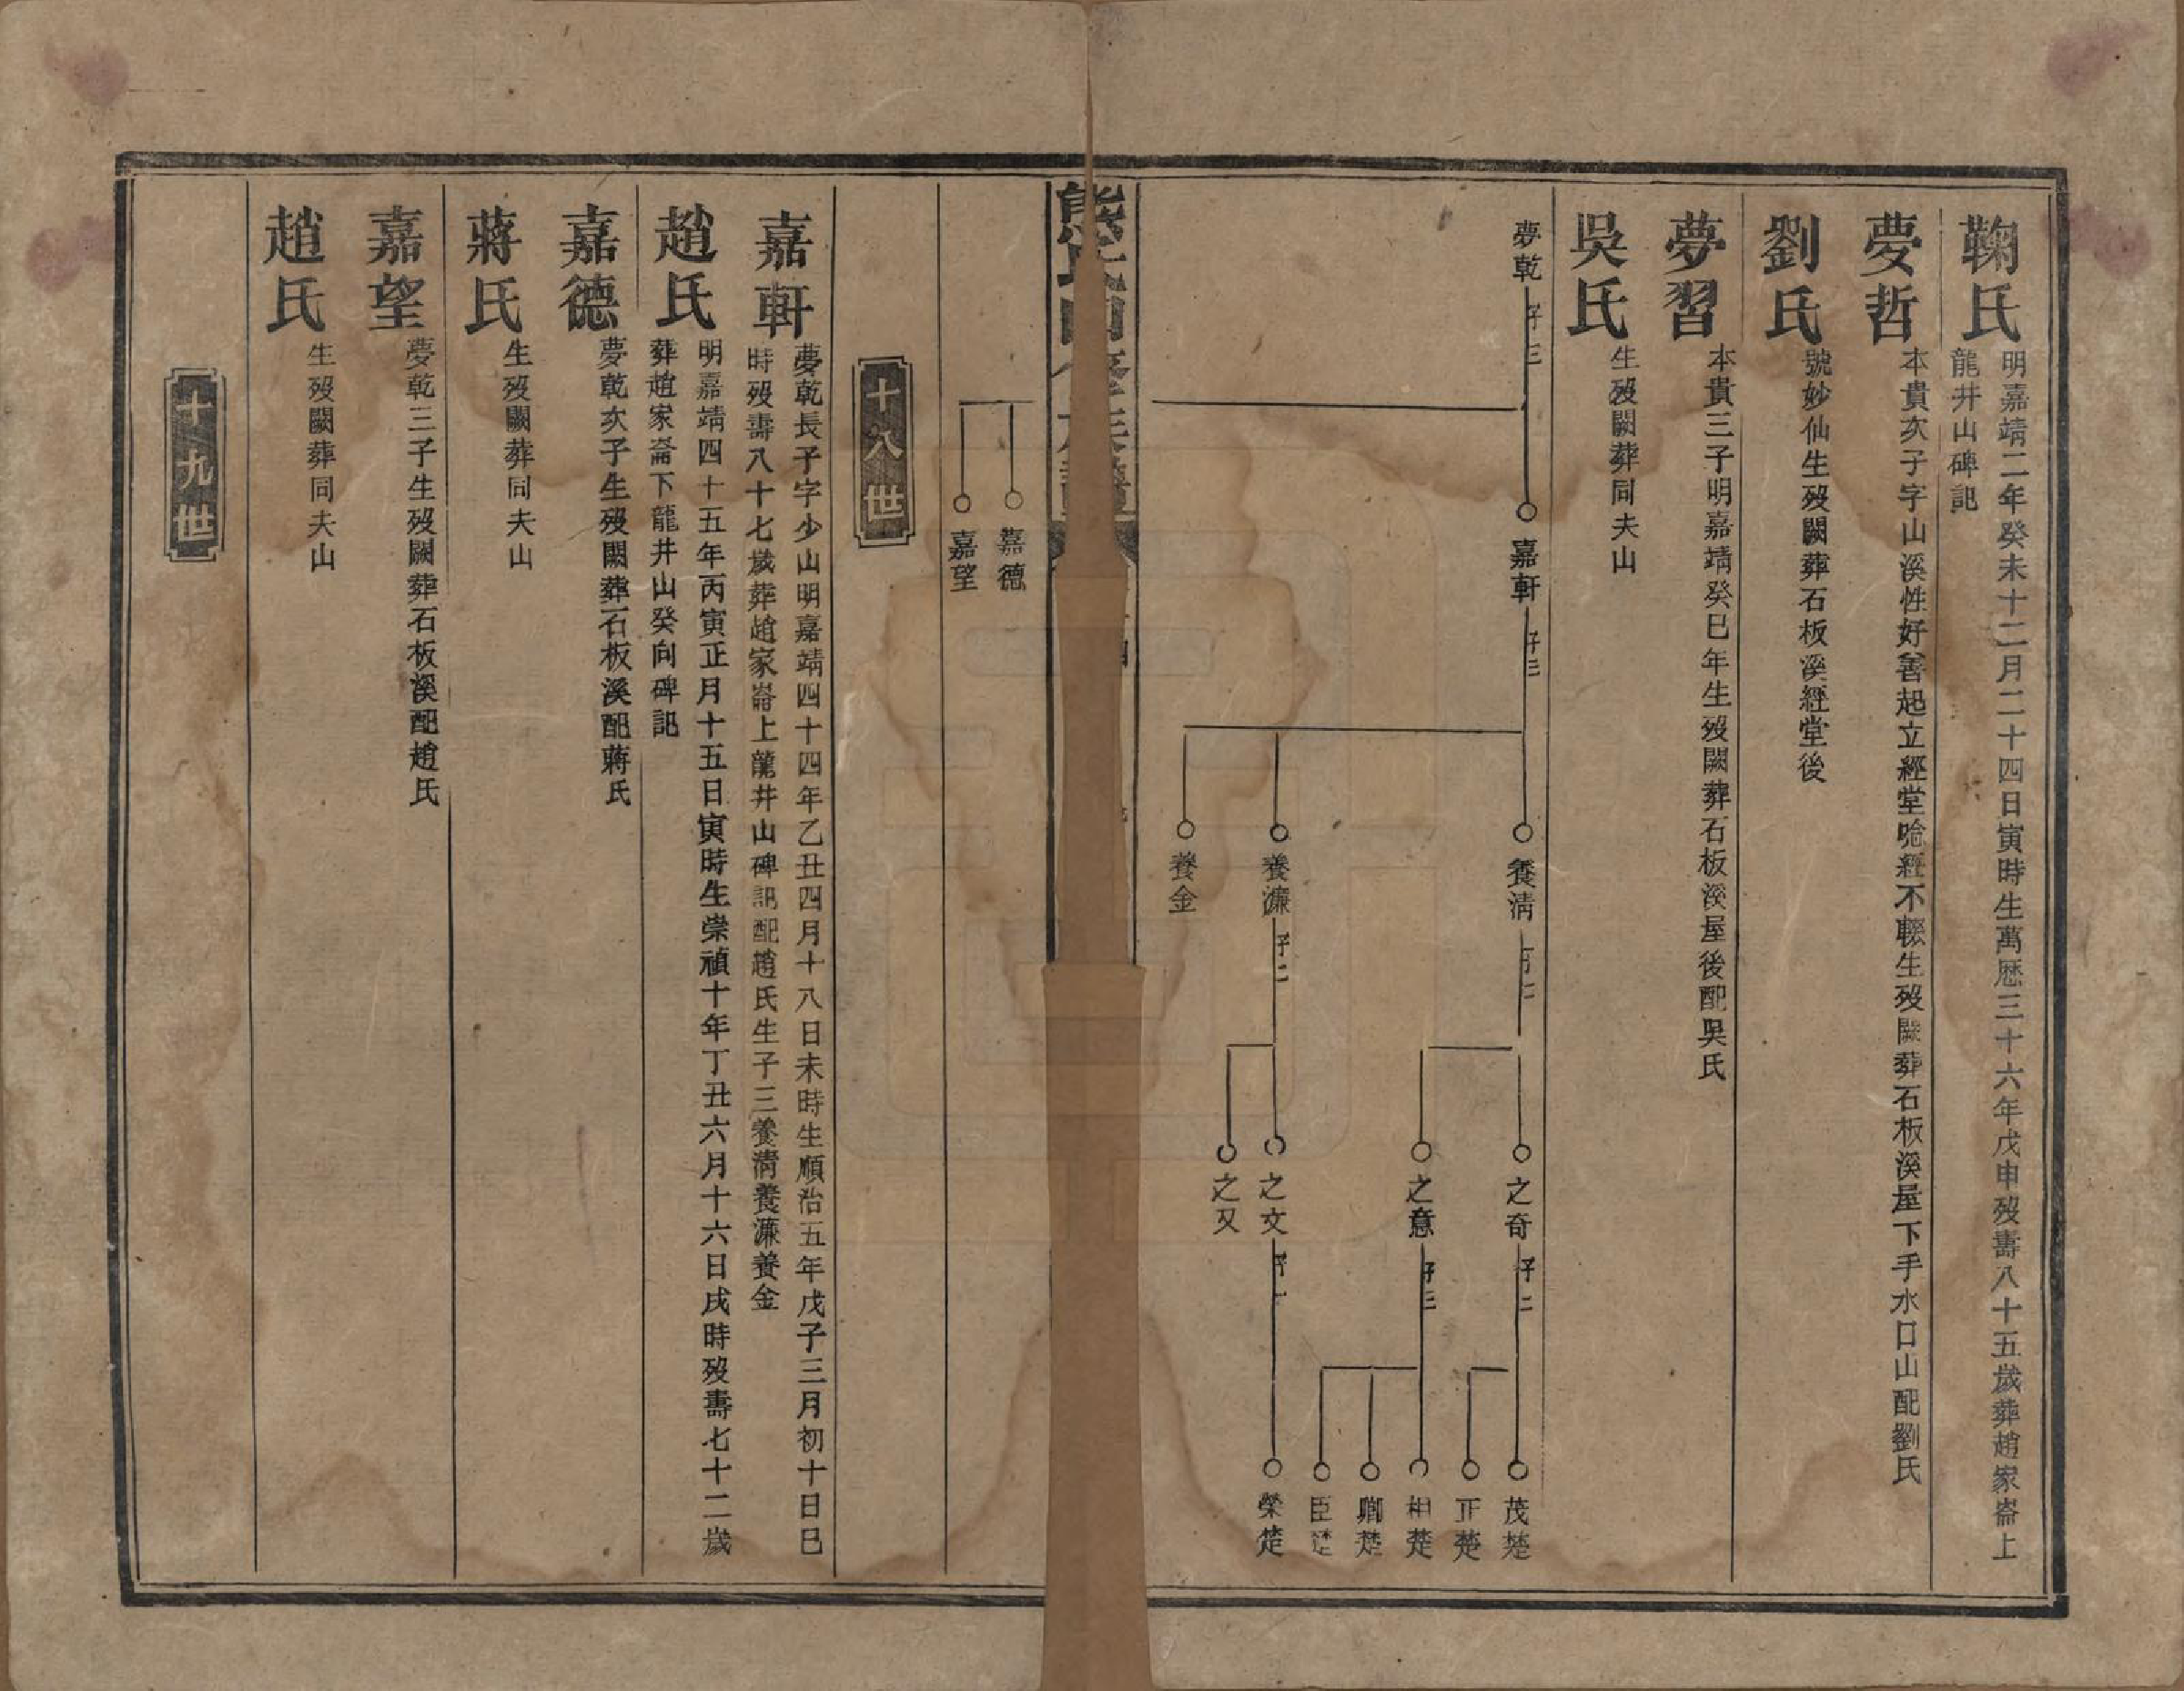 鞠氏
明嘉靖二年癸未十二月二十四日寅時生萬歷三十六年戊申歿壽八十五歲葬趙家崙上
龍井山碑記
夢哲
本貴次子字山溪性好善起立經堂唸經不輟生歿闕葬石板溪屋下手水口山配劉氏
劉氏
號妙仙生歿闕葬石板溪經堂後
夢習
本貴三子明嘉靖癸巳年生歿闕葬石板溪屋後配吳氏
吳氏
生歿闕葬同夫山
夢乾
子三
嘉軒
子三
養清
子二
之奇
子二
茂楚
正楚
之意
子三
相楚
卿楚
臣楚
養濂
子二
之文
子一
榮楚
之又
養金
熊氏
嘉德
嘉望
十八世
嘉軒
夢乾長子字少山明嘉靖四十四年乙丑四月十八日未時生順治五年戊子三月初十日巳
時歿壽八十七歲葬趙家崙上龍井山碑記配趙氏生子三養清養濂養金
趙氏
明嘉靖四十五年丙寅正月十五日寅時生崇禎十年丁丑六月十六日戌時歿壽七十二歲
葬趙家崙下龍井山癸向碑記
嘉德
夢乾次子生歿闕葬石板溪配蔣氏
蔣氏
生歿闕葬同夫山
嘉望
夢乾三子生歿闕葬石板溪配趙氏
趙氏
生歿闕葬同夫山
十九世